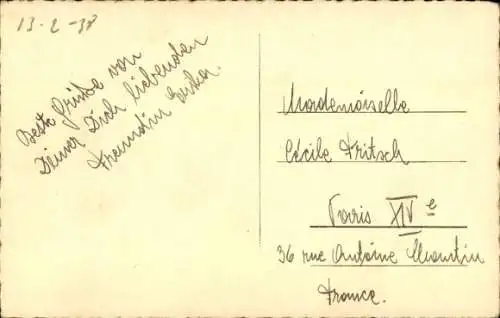 13-2-38
Beste Grüße von
Deiner Dich liebenden
Freundin
Mademoiselle
Cécile Fritsch
Paris XIV e
36 rue Antoine Chantin
France.